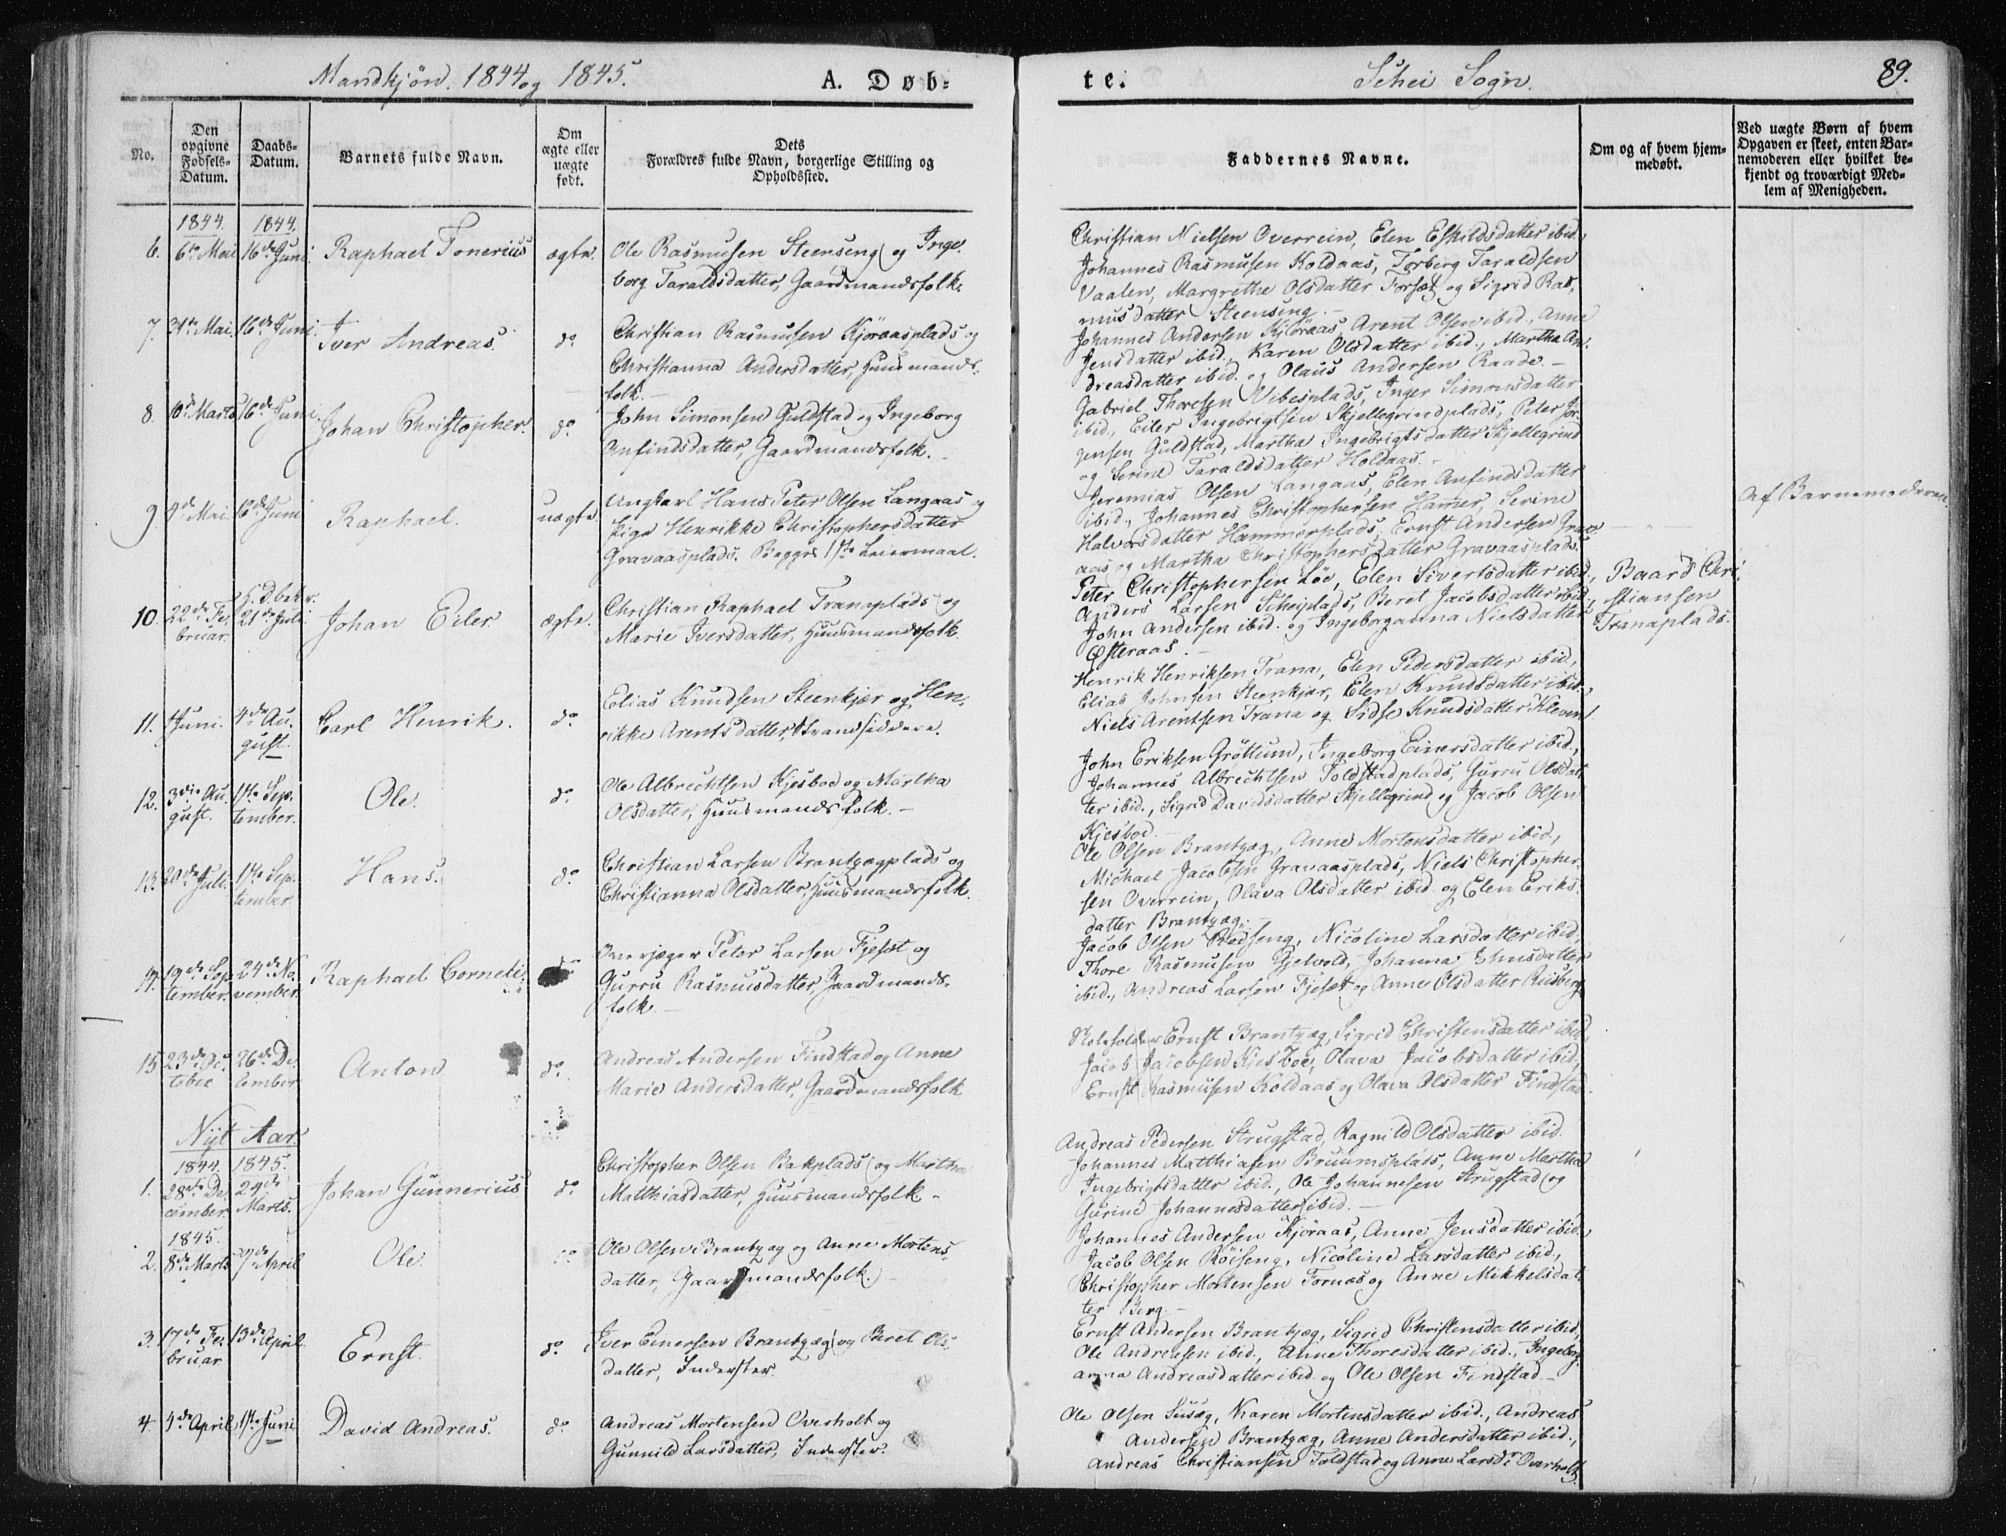 Mandkjøn. 1844 og 1845.
A. Døb-
te.
Schei Sogn.
89.
No.
Den opgivne Fødsels-Datum.
Daabs-Datum.
Barnets fulde Navn.
Om ægte eller uægte født.
Dets Forældres fulde Navn, borgerlige Stilling og Opholdssted.
Faddernes Navne.
Om og af hvem hjemmedøbt.
Ved uægte Børn af hvem Opgaven er skeet, enten Barnemoderen eller hvilket bekjendt og troværdigt Medlem af Menigheden.
1844. 1844.
6. 6te Mai 16de Juni. Raphael Tonerius ægte. Ole Rasmusen Steensing og Inge-
borg Taraldsdatter, Gaardmandsfolk.
Christian Nielsen Overrein, Elen Eskildsdatter ibid.,
Johannes Rasmusen Koldaas, Torberg Taraldsen
Vaalen, Margrethe Olsdatter Forsæt og Sigrid Ras-
musdatter Steensing.
7. 31te Mai. 16de Juni. Iver Andreas. do Christian Rasmusen Kjøraasplads og
Christianna Andersdatter, Huusmands-
folk.
Johannes Andersen Kjøraas, Arent Olsen ibid., Anne
Jensdatter ibid., Karen Olsdatter ibid., Martha An-
dreasdatter ibid. og Olaus Andersen Raade.
8. 10de Marts 16de Juni. Johan Christopher. do. John Simonsen Guldstad og Ingeborg
Anfindsdatter, Gaardmandsfolk.
Gabriel Thoresen Vibesplads, Inger Simonsdatter
ibid., Eiler Ingebrigtsen Skjellegrindplads, Peter Jør-
gensen Guldstad, Martha Ingebrigtsdatter Skjellegrind
og Serine Taraldsdatter Holdaas.
9 9de Mai. 16de Juni Raphael. uægte. Ungkarl Hans Peter Olsen Langaas og
Pige Henrikke Christophersdatter
Gravaasplads. Begges 1ste Leiermaal.
Jeremias Olsen Langaas, Elen Anfindsdatter
ibid., Johannes Christophersen Hamer, Serine
Halvorsdatter Hammerplads, Ernst Andersen Grav-
aas og Martha Christophersdatter Gravaasplads.
Af Barnemoderen.
10. 22de Fe-
bruar. 21de Juli. Johan Eiler ægte. Christian Raphael Tranaplads og
Marie Iversdatter, Huusmandsfolk.
Peter Christophersen Løe, Elen Sivertsdatter ibid.,
Anders Larsen Scheiplads, Beret Jacobsdatter ibid.,
John Andersen ibid. og Ingeborganna Nielsdatter
Østeraas.
Baard Chri-
stiansen
Tranaplads.
11. Juni. 4de Au-
gust. Carl Henrik. do Elias Knudsen Steenkjer og Hen-
rikke Arentsdatter, Strandsiddere.
Henrik Henriksen Trana, Elen Pedersdatter ibid.,
Elias Johnsen Steenkjær, Elen Knudsdatter ibid.,
Niels Arentsen Trana og Sidse Knudsdatter Kleven
12. 3die Au-
gust. 1ste Sep-
tember. Ole. do. Ole Albrechtsen Kjesboe og Martha
Olsdatter, Huusmandsfolk.
John Eriksen Grøttum, Ingeborg Einersdatter ibid.,
Johannes Albrechtsen Toldstadplads, Gurru Olsdat-
ter ibid., Sigrid Davidsdatter Skjellegrind og Jacob Olsen
Kjesboe.
13. 20de Juli. 1ste Sep-
tember. Hans. do. Christian Larsen Brantzægplads og
Christianna Olsdatter, Huusmandsfolk.
Ole Olsen Brantzæg, Anne Mortensdatter ibid.,
Michael Jacobsen Gravaasplads, Niels Christopher-
sen Overrein, Olava Olsdatter ibid. og Elen Eriks-
datter Brantzæg.
14. 19de Sep-
tember. 24de No-
vember. Raphael Corneli do Overjæger Peter Larsen Fjesæt og
Gurru Rasmusdatter, Gaardmands-
folk.
Jacob Olsen Røiseng, Nicoline Larsdatter ibid.,
Thore Rasmusen Gjelvold, Johanna datter
ibid., Andreas Larsen Fjesæt og Anne Olsdatter Risberg
15 23de Oc-
tober 26de De-
cember. Anton do. Andreas Andersen Findstad og Anne
Marie Andersdatter, Gaardmandsfolk
Ernst Brantzæg, Sigrid Christensdatter ibid.,
Jacob Jacobsen Kjesboe, Olava Jacobsdatter ibid.,
Ernst Rasmusen Koldaas og Olava Olsdatter Findstad.
Nyt Aar.
1844. 1845.
1. 28de De-
cember. 24de
Marts. Johan Gunnerius do. Christopher Olsen Bakplads og Martha
Matthiasdatter, Huusmandsfolk.
Andreas Pedersen Strugstad, Ragnild Olsdatter ibid.
Johannes Matthiasen Bruumsplads, Anne Martha
Ingebrigtsdatter ibid., Ole Johannesen Strugstad og
Gurine Johannesdatter ibid.
1845.
2. 8de Marts April Ole. do Ole Olsen Brantzæg og Anne Mortens-
datter, Gaardmandsfolk.
Johannes Andersen Kjøraas, Anne Jensdatter ibid.,
Jacob Olsen Røiseng, Nicoline Larsdatter ibid.,
Christopher Mortensen Fornæs og Anne Mikkelsdat-
ter Berg.
3. 17de Fe-
bruar 13de April. Ernst. do. Iver Einersen Brantzæg og Beret Ols-
datter, Inderster.
Ernst Andersen Brantzæg, Sigrid Christensdatter ibid.,
Ole Andreasen ibid., Anne Thoresdatter ibid., Ingeborg-
anna Andreasdatter ibid. og Ole Olsen Findstad.
4. 4de April 1ste Juni David Andreas. do. Andreas Mortensen Overholt og
Gunnild Larsdatter, Inderster.
Ole Olsen Susæg, Karen Mortensdatter ibid., Andreas
Andersen Brantzæg, Anne Andersdatter ibid.,
Andreas Christiansen Toldstad og Anne Larsdr Overholt.